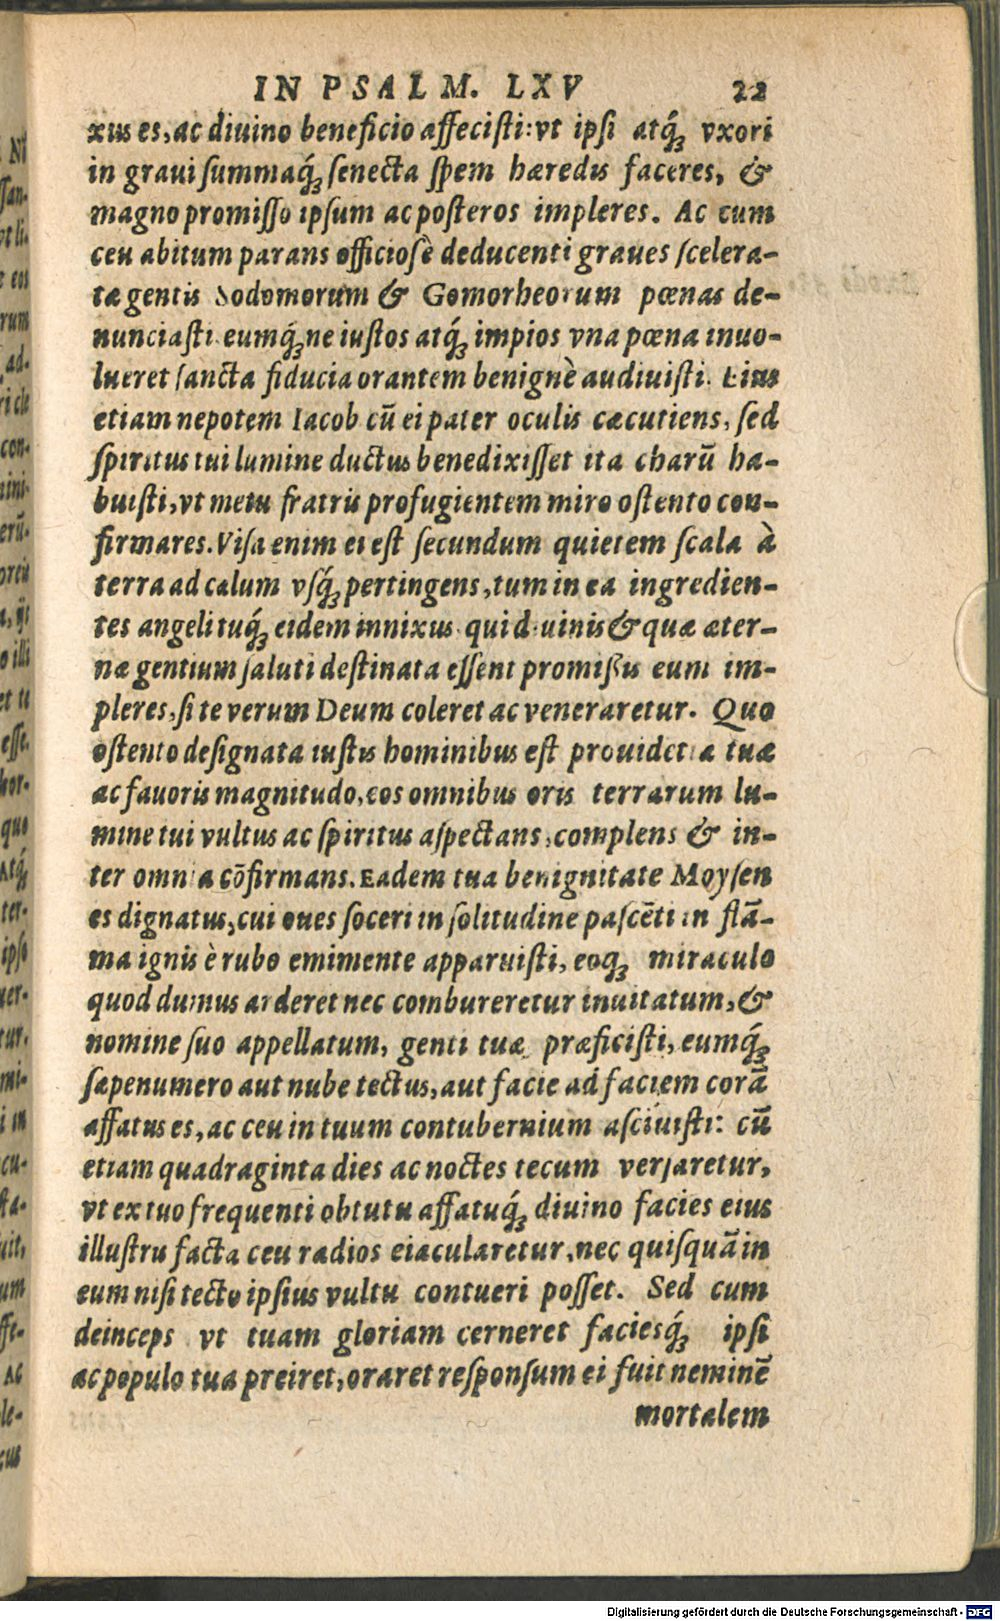 IN PSALM. LXV 22
xius es, ac diuino beneficio affecisti: vt ipsi atq́ꝫ vxori
in graui summaq́ꝫ senecta spem hæredis faceres, &
magno promisso ipsum ac posteros impleres. Ac cum
ceu abitum parans officiosè deducenti graues scelera-
tæ gentis Sodomorum & Gomorheorum pœnas de-
nunciasti eumq́ꝫ ne iustos atq́ꝫ impios vna pœna inuo-
lueret sancta fiducia orantem benignè audiuisti. Eius
etiam nepotem Iacob cū ei pater oculis cæcutiens, sed
spiritus tui lumine ductus benedixisset ita charū ha-
buisti, vt metu fratris profugientem miro ostento con-
firmares. Visa enim ei est secundum quietem scala à
terra ad cælum vsq́ꝫ pertingens, tum in ea ingredien-
tes angeli tuq́ꝫ eidem innixus qui diuinis & quæ æter-
næ gentium saluti destinata essent promißis eum im-
pleres, si te verum Deum coleret ac veneraretur. Quo
ostento designata iustis hominibus est prouidētia tuæ
ac fauoris magnitudo, eos omnibus oris terrarum lu-
mine tui vultus ac spiritus aspectans, complens & in-
ter omnia cōfirmans. Eadem tua benignitate Moysen
es dignatus, cui oues soceri in solitudine pascēti in flā-
ma ignis è rubo emimente apparuisti, eoqꝫ miraculo
quod dumus arderet nec combureretur inuitatum, &
nomine suo appellatum, genti tuæ præficisti, eumq́ꝫ
sæpenumero aut nube tectus, aut facie ad faciem corā
affatus es, ac ceu in tuum contubernium asciuisti: cū
etiam quadraginta dies ac noctes tecum versaretur,
vt ex tuo frequenti obtutu affatuq́ꝫ diuino facies eius
illustris facta ceu radios eiacularetur, nec quisquā in
eum nisi tecto ipsius vultu contueri posset. Sed cum
deinceps vt tuam gloriam cerneret faciesq́ꝫ ipsi
ac populo tua preiret, oraret responsum ei fuit neminē
mortalem
Digitalisierung gefördert durch die Deutsche Forschungsgemeinschaft - DFG